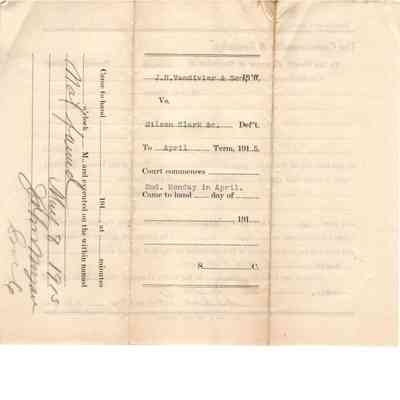 J.H.Vandivier & Son, Pl'ff,
Vs.
Gilson Clark &c. Def't.
To April Term, 1915.
Court commences
2nd. Monday in April.
Came to hand day of
191
$ C.
Came to hand 191 at minutes
o'clock M., and executed on the within named
Not found
May 8 1915